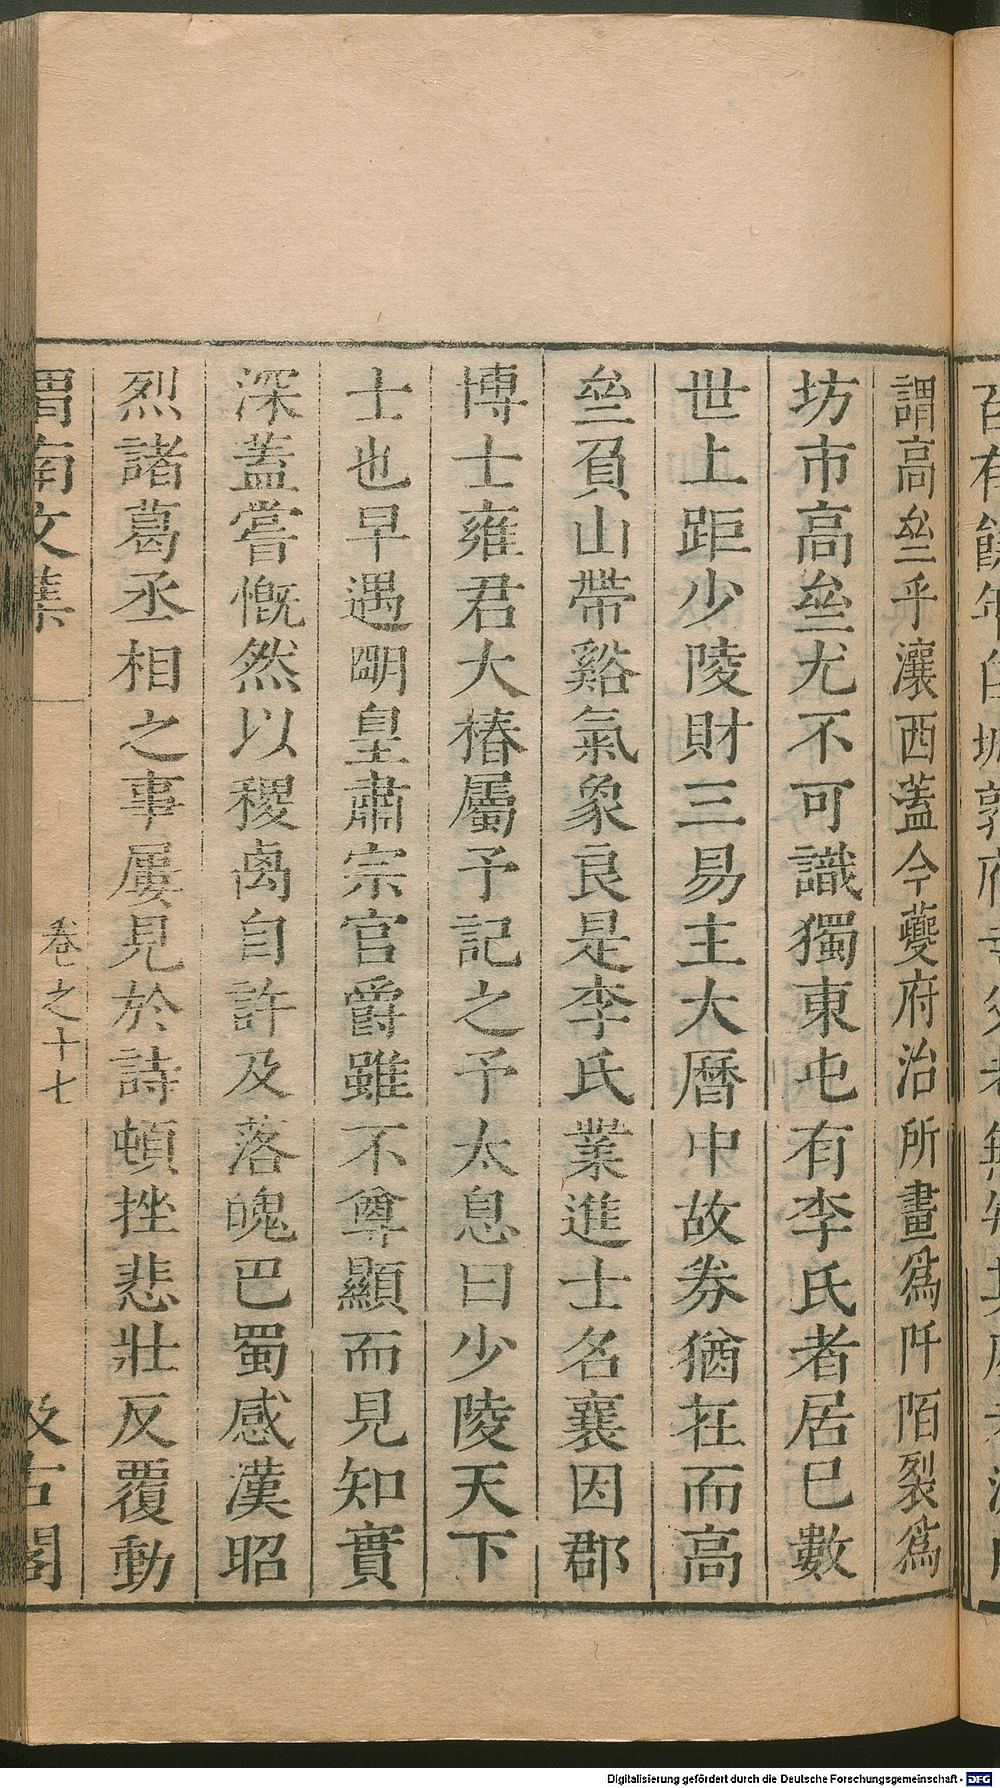 謂高垒乎瀼西蓋今夔府治所畫爲阡陌裂爲
坊市高垒尤不可識獨東屯有李氏者居已數
世上距少陵財三易主大曆中故券猶在而高
垒負山帶谿氣象良是李氏業進士名襄因郡
博士雍君大椿屬予記之予太息曰少陵天下
士也早遇明皇肅宗官爵雖不尊顯而見知實
深蓋嘗慨然以稷卨自許及落魄巴蜀感漢昭
烈諸葛丞相之事屢見於詩頓挫悲壯反覆動
渭南文集 卷之十七 汲古閣
Digitalisierung gefördert durch die Deutsche Forschungsgemeinschaft - DFG